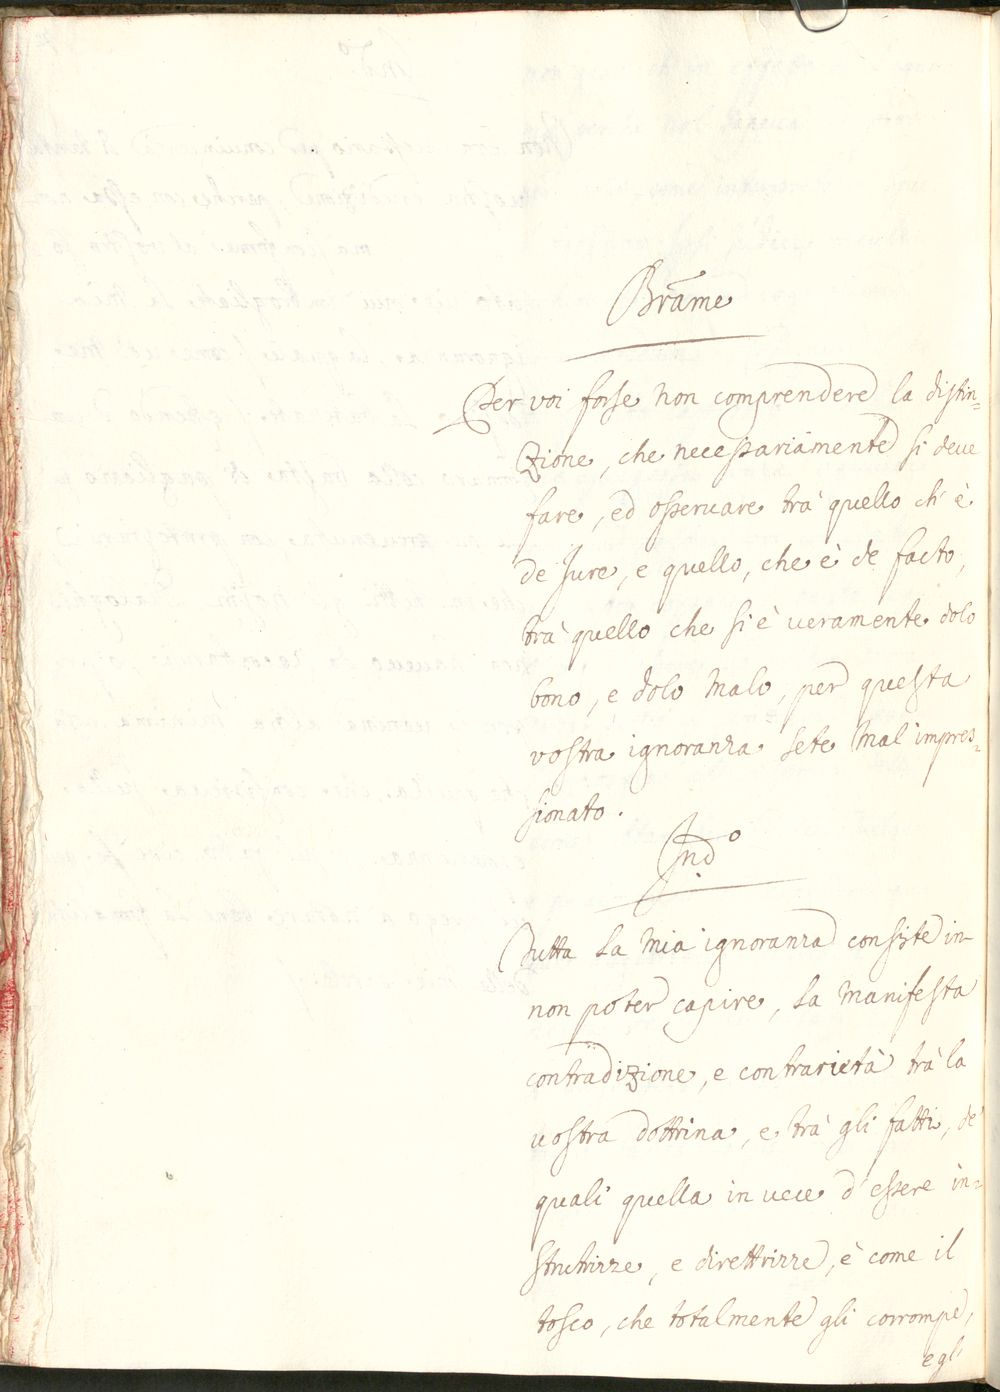 Brame
Per voi forse non comprendere la distin=
zione, che necessariamente si deve
fare, ed osservare trà quello ch' è
de Jure, e quello, che è de facto,
trà quello che si è veramente dolo
bono, e dolo malo, per questa
vostra ignoranza sete mal' impres=
sionato.
Ind.º
Tutta la mia ignoranza consiste in
non poter capire, la manifesta
contradizione, e contrarietà trà la
vostra dottrina, e trà gli fatti, de'
quali quella in vece d' essere in=
structrizze, e direttrizze, è come il
tosco, che totalmente gli corrompe,
e gl'